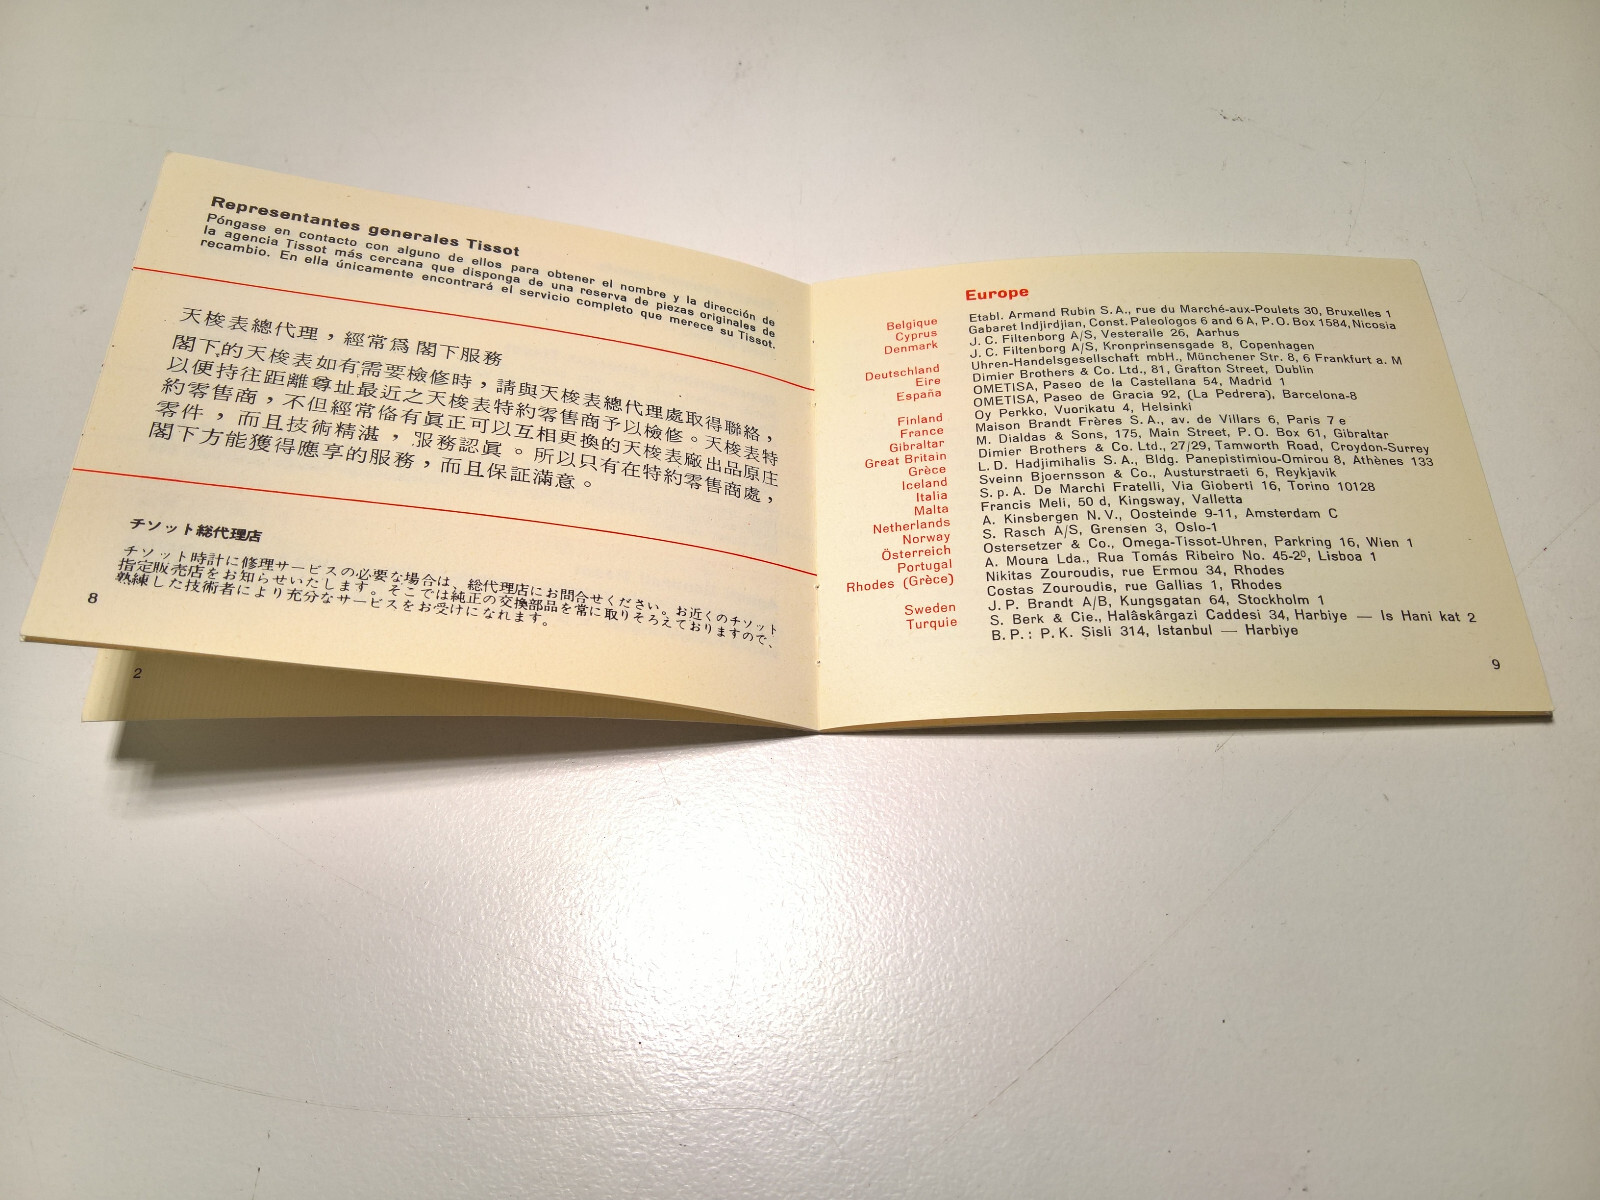 Representantes generales Tissot
Póngase en contacto con alguno de ellos para obtener el nombre y la dirección de
la agencia Tissot más cercana que disponga de una reserva de piezas originales de
recambio. En ella únicamente encontrará el servicio completo que merece su Tissot.
天梭表總代理，經常爲 閣下服務
閣下的天梭表如有需要檢修時，請與天梭表總代理處取得聯絡，
以便持往距離尊址最近之天梭表特約零售商予以檢修。天梭表特
約零售商，不但經常俻有眞正可以互相更換的天梭表廠出品原庄
零件，而且技術精湛，服務認眞。所以只有在特約零售商處，
閣下方能獲得應享的服務，而且保証滿意。
チソット総代理店
チソット時計に修理サービスの必要な場合は、総代理店にお問合せください。お近くのチソット
指定販売店をお知らせいたします。そこでは純正の交換部品を常に取りそろえておりますので、
熟練した技術者により充分なサービスをお受けになれます。
8
2
Europe
Belgique Etabl. Armand Rubin S.A., rue du Marché-aux-Poulets 30, Bruxelles 1
Cyprus Gabaret Indjirdjian, Const. Paleologos 6 and 6 A, P.O. Box 1584, Nicosia
Denmark J. C. Filtenborg A/S, Vesteralle 26, Aarhus
J. C. Filtenborg A/S, Kronprinsensgade 8, Copenhagen
Deutschland Uhren-Handelsgesellschaft mbH., Münchener Str. 8, 6 Frankfurt a. M
Eire Dimier Brothers & Co. Ltd., 81, Grafton Street, Dublin
España OMETISA, Paseo de la Castellana 54, Madrid 1
OMETISA, Paseo de Gracia 92, (La Pedrera), Barcelona-8
Finland Oy Perkko, Vuorikatu 4, Helsinki
France Maison Brandt Frères S. A., av. de Villars 6, Paris 7 e
Gibraltar M. Dialdas & Sons, 175, Main Street, P. O. Box 61, Gibraltar
Great Britain Dimier Brothers & Co. Ltd., 27/29, Tamworth Road, Croydon-Surrey
Grèce L. D. Hadjimihalis S. A., Bldg. Panepistimiou-Omirou 8, Athènes 133
Iceland Sveinn Bjoernsson & Co., Austurstraeti 6, Reykjavik
Italia S. p. A. De Marchi Fratelli, Via Gioberti 16, Torino 10128
Malta Francis Meli, 50 d, Kingsway, Valletta
Netherlands A. Kinsbergen N. V., Oosteinde 9-11, Amsterdam C
Norway S. Rasch A/S, Grensen 3, Oslo-1
Österreich Ostersetzer & Co., Omega-Tissot-Uhren, Parkring 16, Wien 1
Portugal A. Moura Lda., Rua Tomás Ribeiro No. 45-2º, Lisboa 1
Rhodes (Grèce) Nikitas Zouroudis, rue Ermou 34, Rhodes
Costas Zouroudis, rue Gallias 1, Rhodes
Sweden J. P. Brandt A/B, Kungsgatan 64, Stockholm 1
Turquie S. Berk & Cie., Halâskârgazi Caddesi 34, Harbiye — Is Hani kat 2
B. P.: P. K. Sisli 314, Istanbul — Harbiye
9